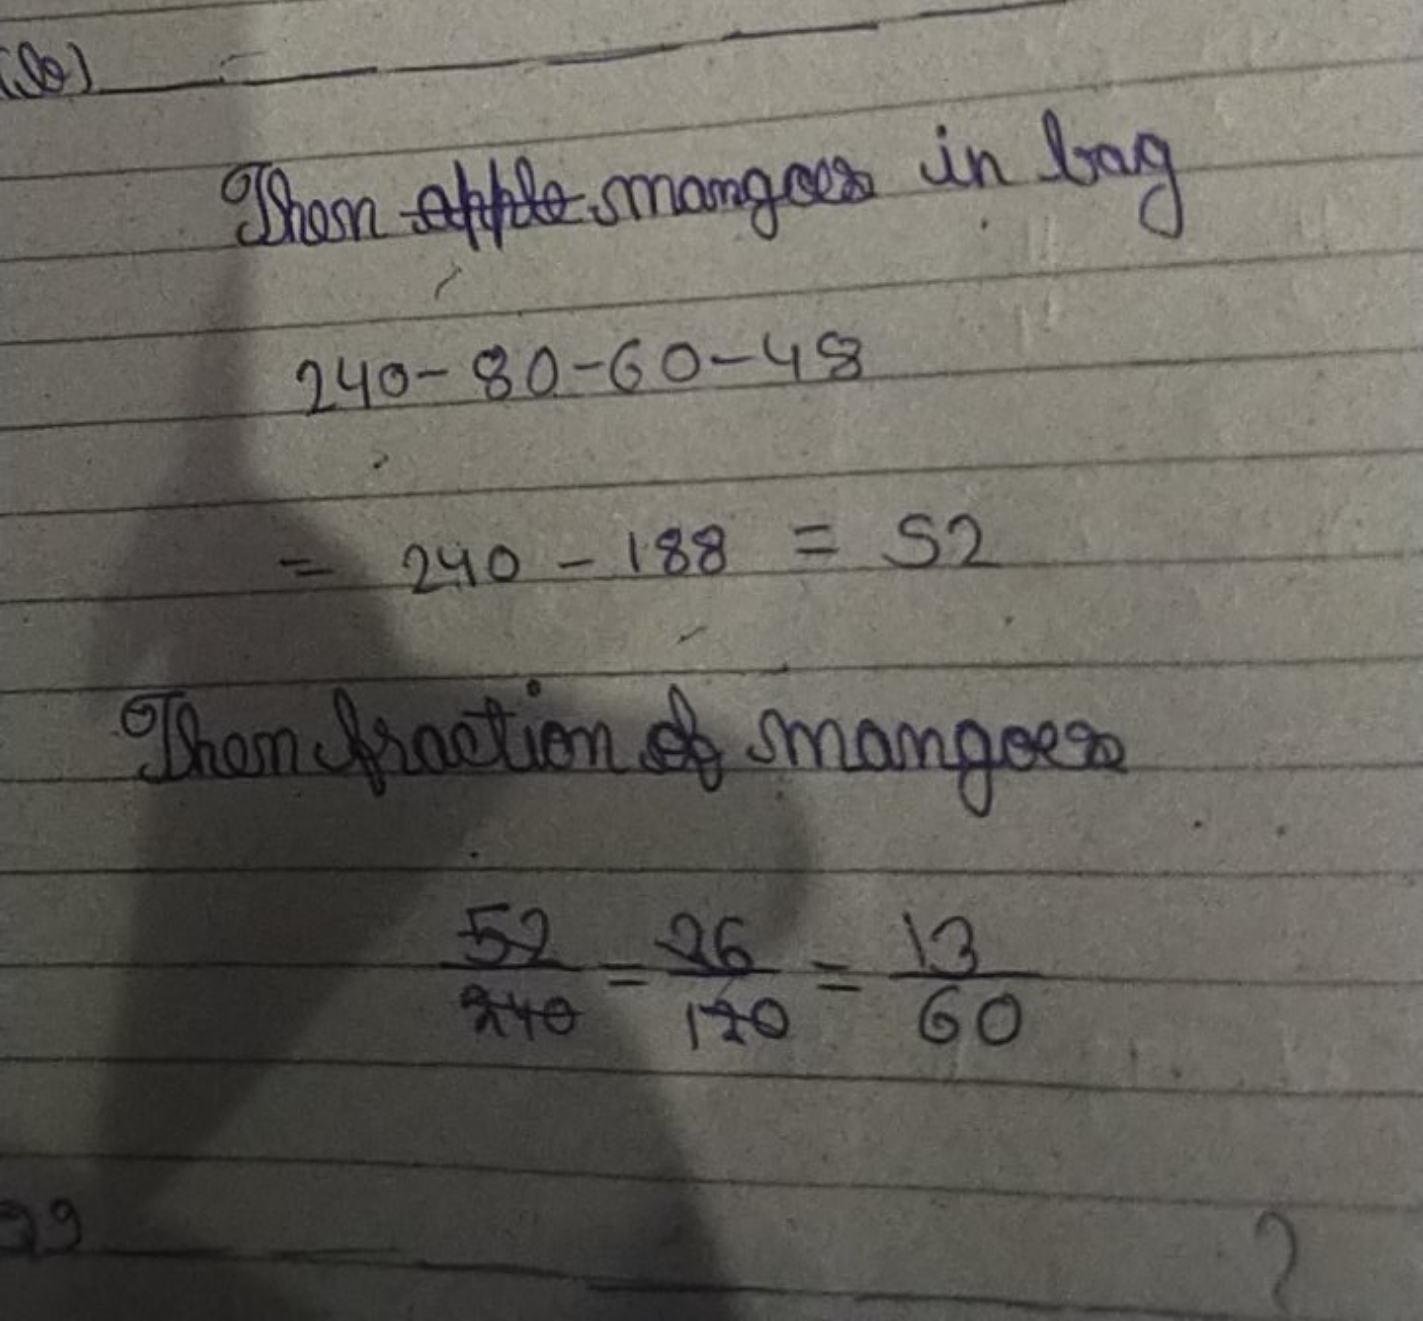 Then apple mangoes in bag
240-80-60-48
= 240 - 188 = 52
Then fraction of mangoes
52/240 = 26/120 = 13/60
99
?